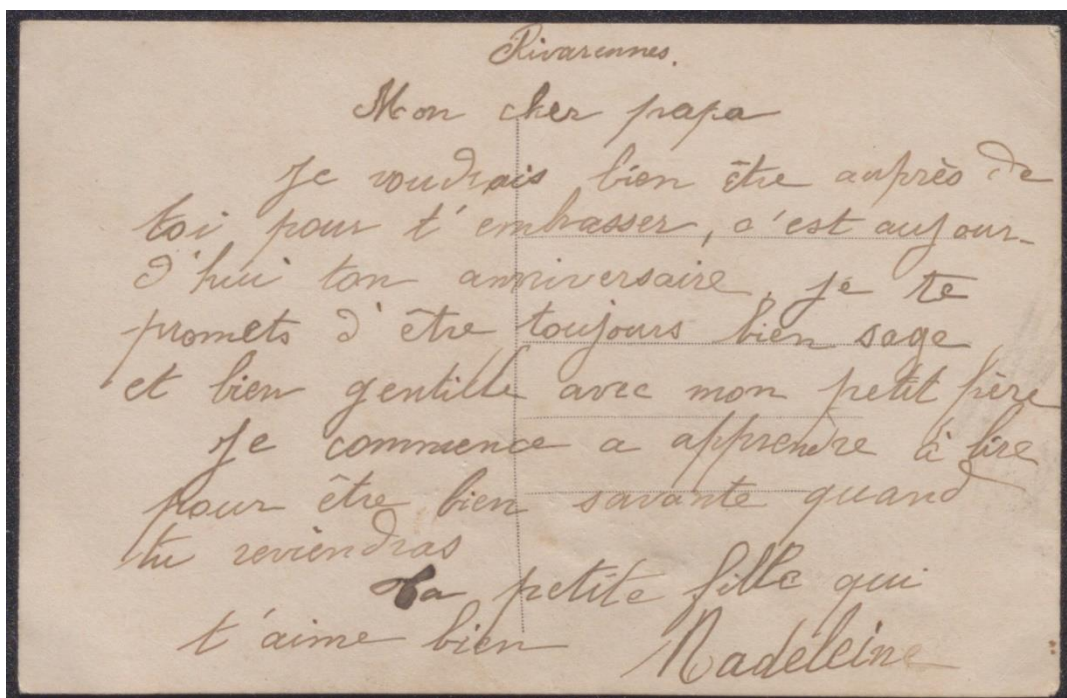 Rivarennes.
Mon cher papa
Je voudrais bien être auprès de
toi pour t'embrasser, c'est aujour-
d'hui ton anniversaire. je te
promets d'être toujours bien sage
et bien gentille avec mon petit père
Je commence a apprendre à lire
pour être bien savante quand
tu reviendras
Ta petite fille qui
t'aime bien Madeleine